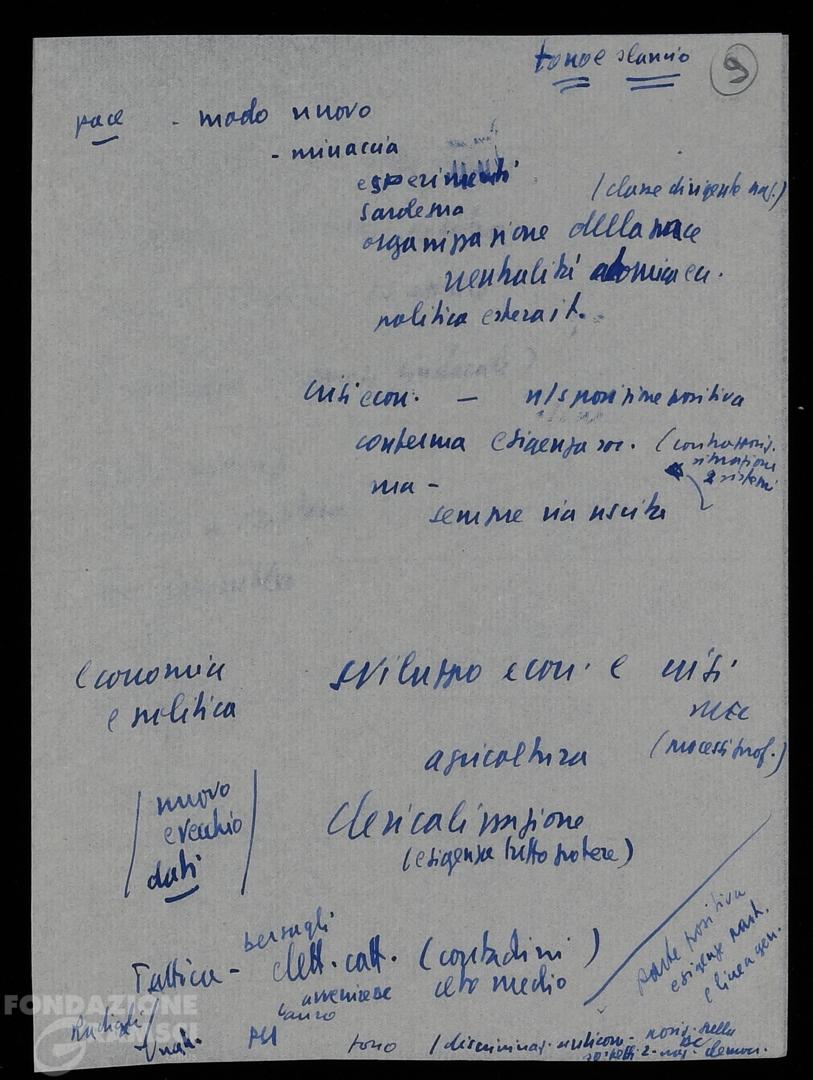 tono e slancio 9
pace - modo nuovo
- minaccia
esperimenti
Sardegna (classe dirigente naz.)
organizzazione della pace
neutralità atomica ecc.
politica estera it.
crisi econ. - n/s posizione positiva
conferma esigenza soc. (contrappos.
situazioni
2 sistemi
ma -
sempre via uscita
economia sviluppo econ. e crisi
e politica MEC
agricoltura (processi prof.)
nuovo
e vecchio
dati
Clericalizzazione
(esigenza tutto potere)
parte positiva
esigenze
e linea gen.
bersagli
Tattica - elett. catt. (contadini)
avvenire ceto medio
Lauro
Radicali
PSI tono (discriminaz. anticom. - posiz. nella
DC
democr.
FONDAZIONE
GRAMSCI